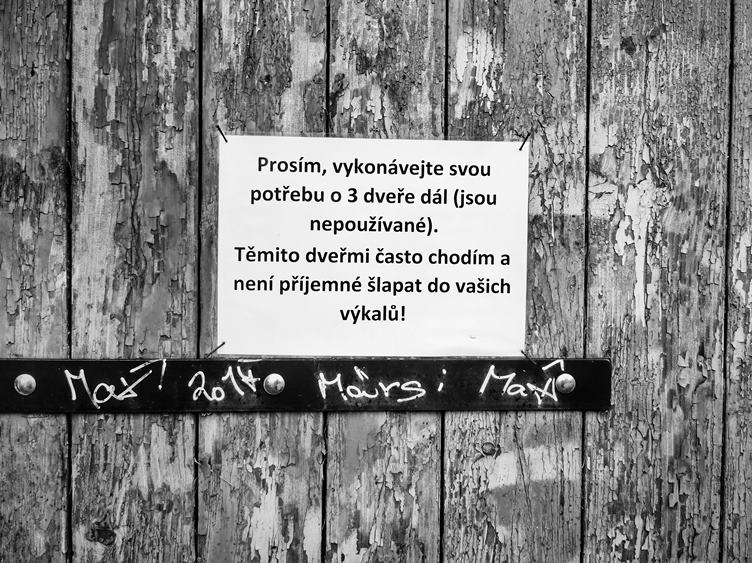 Prosím, vykonávejte svou
potřebu o 3 dveře dál (jsou
nepoužívané).
Těmito dveřmi často chodím a
není příjemné šlapat do vašich
výkalů!